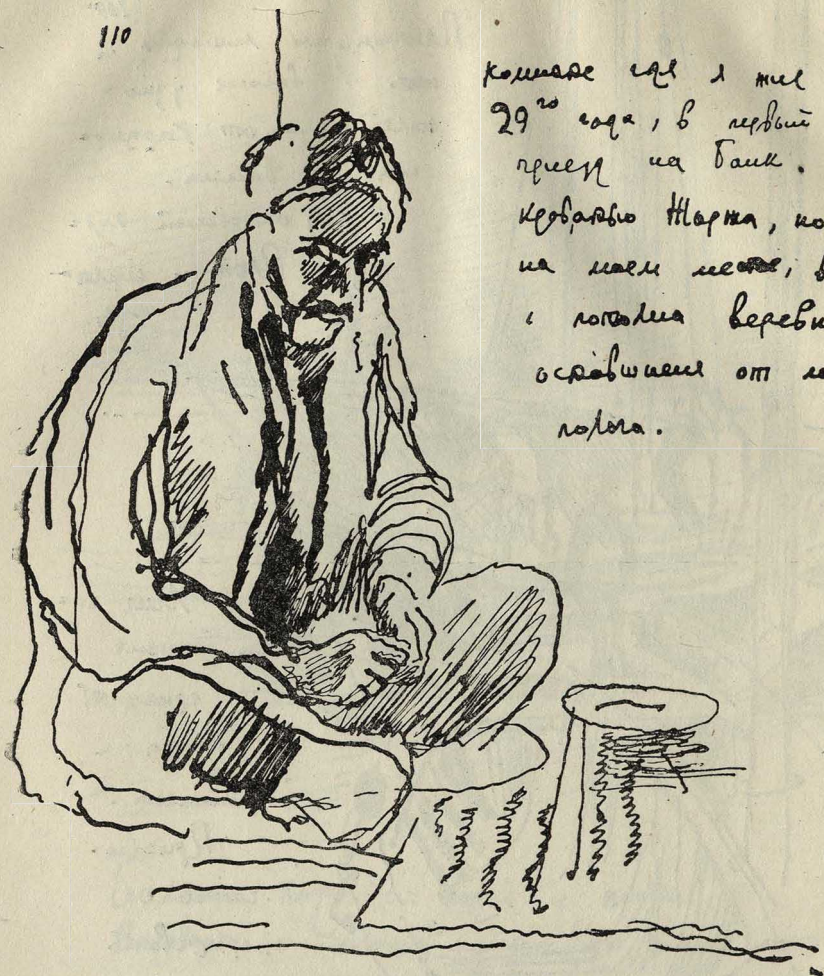 110
комнате где я жил
29го года, в первый
приезд на Банк.
кроватью Жоржа, ко
на моем месте, в
с потолка веревк
оставшиеся от
полога.